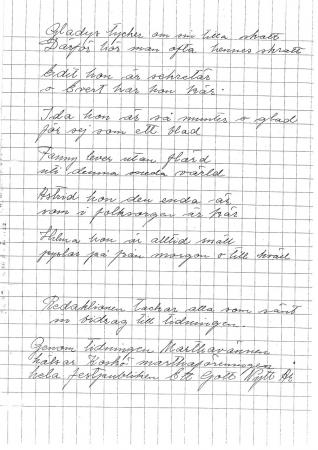 Gladys tycker om sin lilla skatt
Därför hör man ofta hennes skratt
Edit hon är sekretär
o Evert har hon kär.
Ida hon är så munter o glad
far vej som ett blad
Fanny lever utan flärd
uti denna onda värld
Astrid hon den enda är
som i folksorgen är kär
Hilma hon är alltid snäll
pysslar på från morgon o till kväll
Redaktionen tackar alla som sänt
in bidrag till tidningen.
Genom tidningen Marthavännen
hälsar Koskö marthaförening
hela festpubliken Ett Gott Nytt År